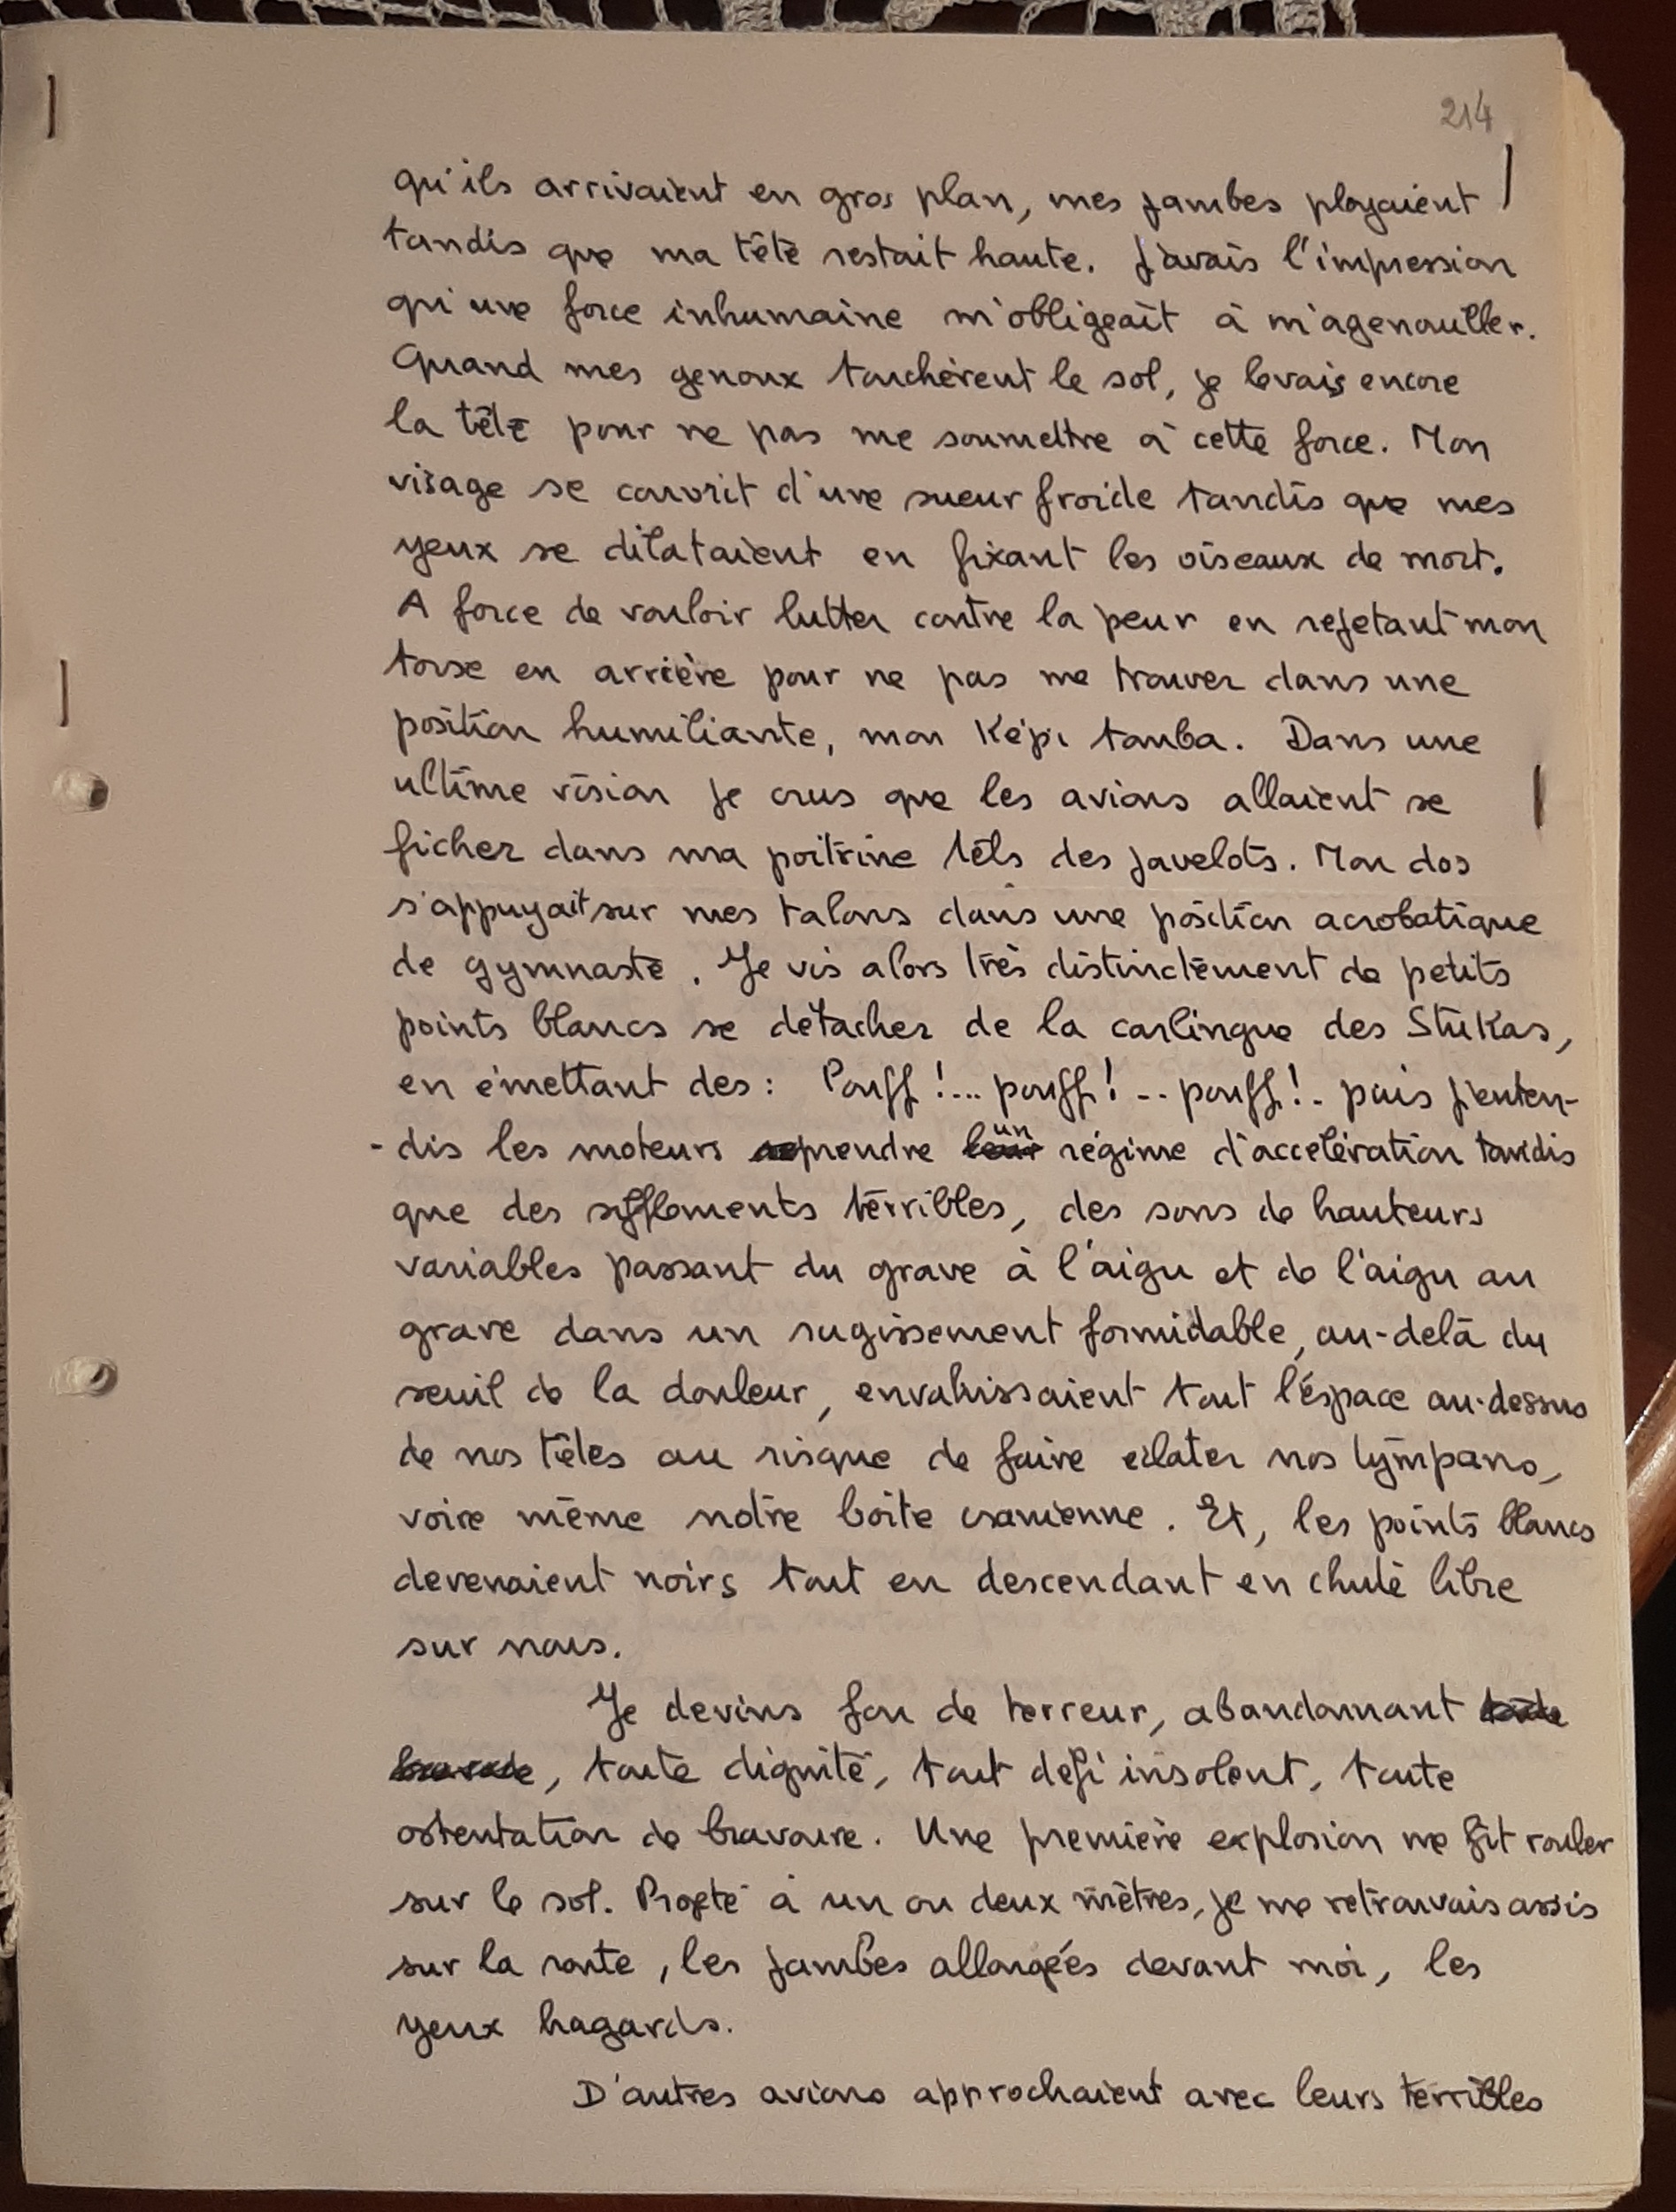 214
qu'ils arrivaient en gros plan, mes jambes ployaient
tandis que ma tête restait haute. J'avais l'impression
qu'une force inhumaine m'obligeait à m'agenouiller.
Quand mes genoux touchèrent le sol, je levais encore
la tête pour ne pas me soumettre à cette force. Mon
visage se couvrit d'une sueur froide tandis que mes
yeux se dilataient en fixant les oiseaux de mort.
A force de vouloir lutter contre la peur en rejetant mon
torse en arrière pour ne pas me trouver dans une
position humiliante, mon Képi tomba. Dans une
ultime vision je crus que les avions allaient se
ficher dans ma poitrine tels des javelots. Mon dos
s'appuyait sur mes talons dans une position acrobatique
de gymnaste. Je vis alors très distinctement de petits
points blancs se détacher de la carlingue des Stukas,
en émettant des : Pouff !... pouff ! .. pouff ! . puis j'enten-
- dis les moteurs reprendre leur un régime d'accélération tandis
que des sifflements terribles, des sons de hauteurs
variables passant du grave à l'aigu et de l'aigu au
grave dans un rugissement formidable, au-delà du
seuil de la douleur, envahissaient tout l'espace au-dessus
de nos têtes au risque de faire éclater nos tympans,
voire même notre boîte cranienne. Et, les points blancs
devenaient noirs tout en descendant en chute libre
sur nous.
Je devins fou de terreur, abandonnant toute
bravade, toute dignité, tout défi insolent, toute
ostentation de bravoure. Une première explosion me fit rouler
sur le sol. Projeté à un ou deux mètres, je me retrouvais assis
sur la route, les jambes allongées devant moi, les
yeux hagards.
D'autres avions approchaient avec leurs terribles